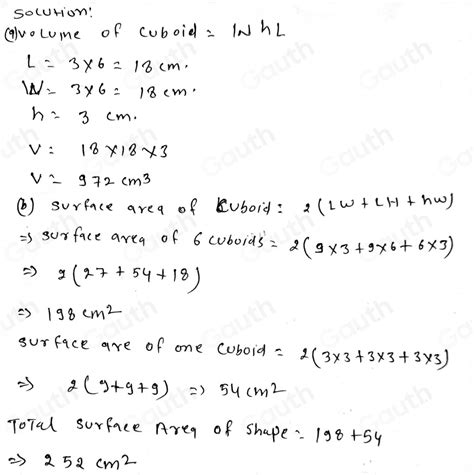 Solution:
(a) volume of cuboid = W h L
L = 3x6 = 18 cm.
W = 3x6 = 18 cm.
h = 3 cm.
V = 18x18x3
V = 972 cm3
(b) surface area of cuboid = 2(LW+LH+hw)
=> surface area of 6 cuboids = 2(9x3+9x6+6x3)
=> 2(27+54+18)
=> 198 cm2
surface are of one cuboid = 2(3x3+3x3+3x3)
=> 2(9+9+9) => 54 cm2
Total surface Area of shape = 198+54
=> 252 cm2